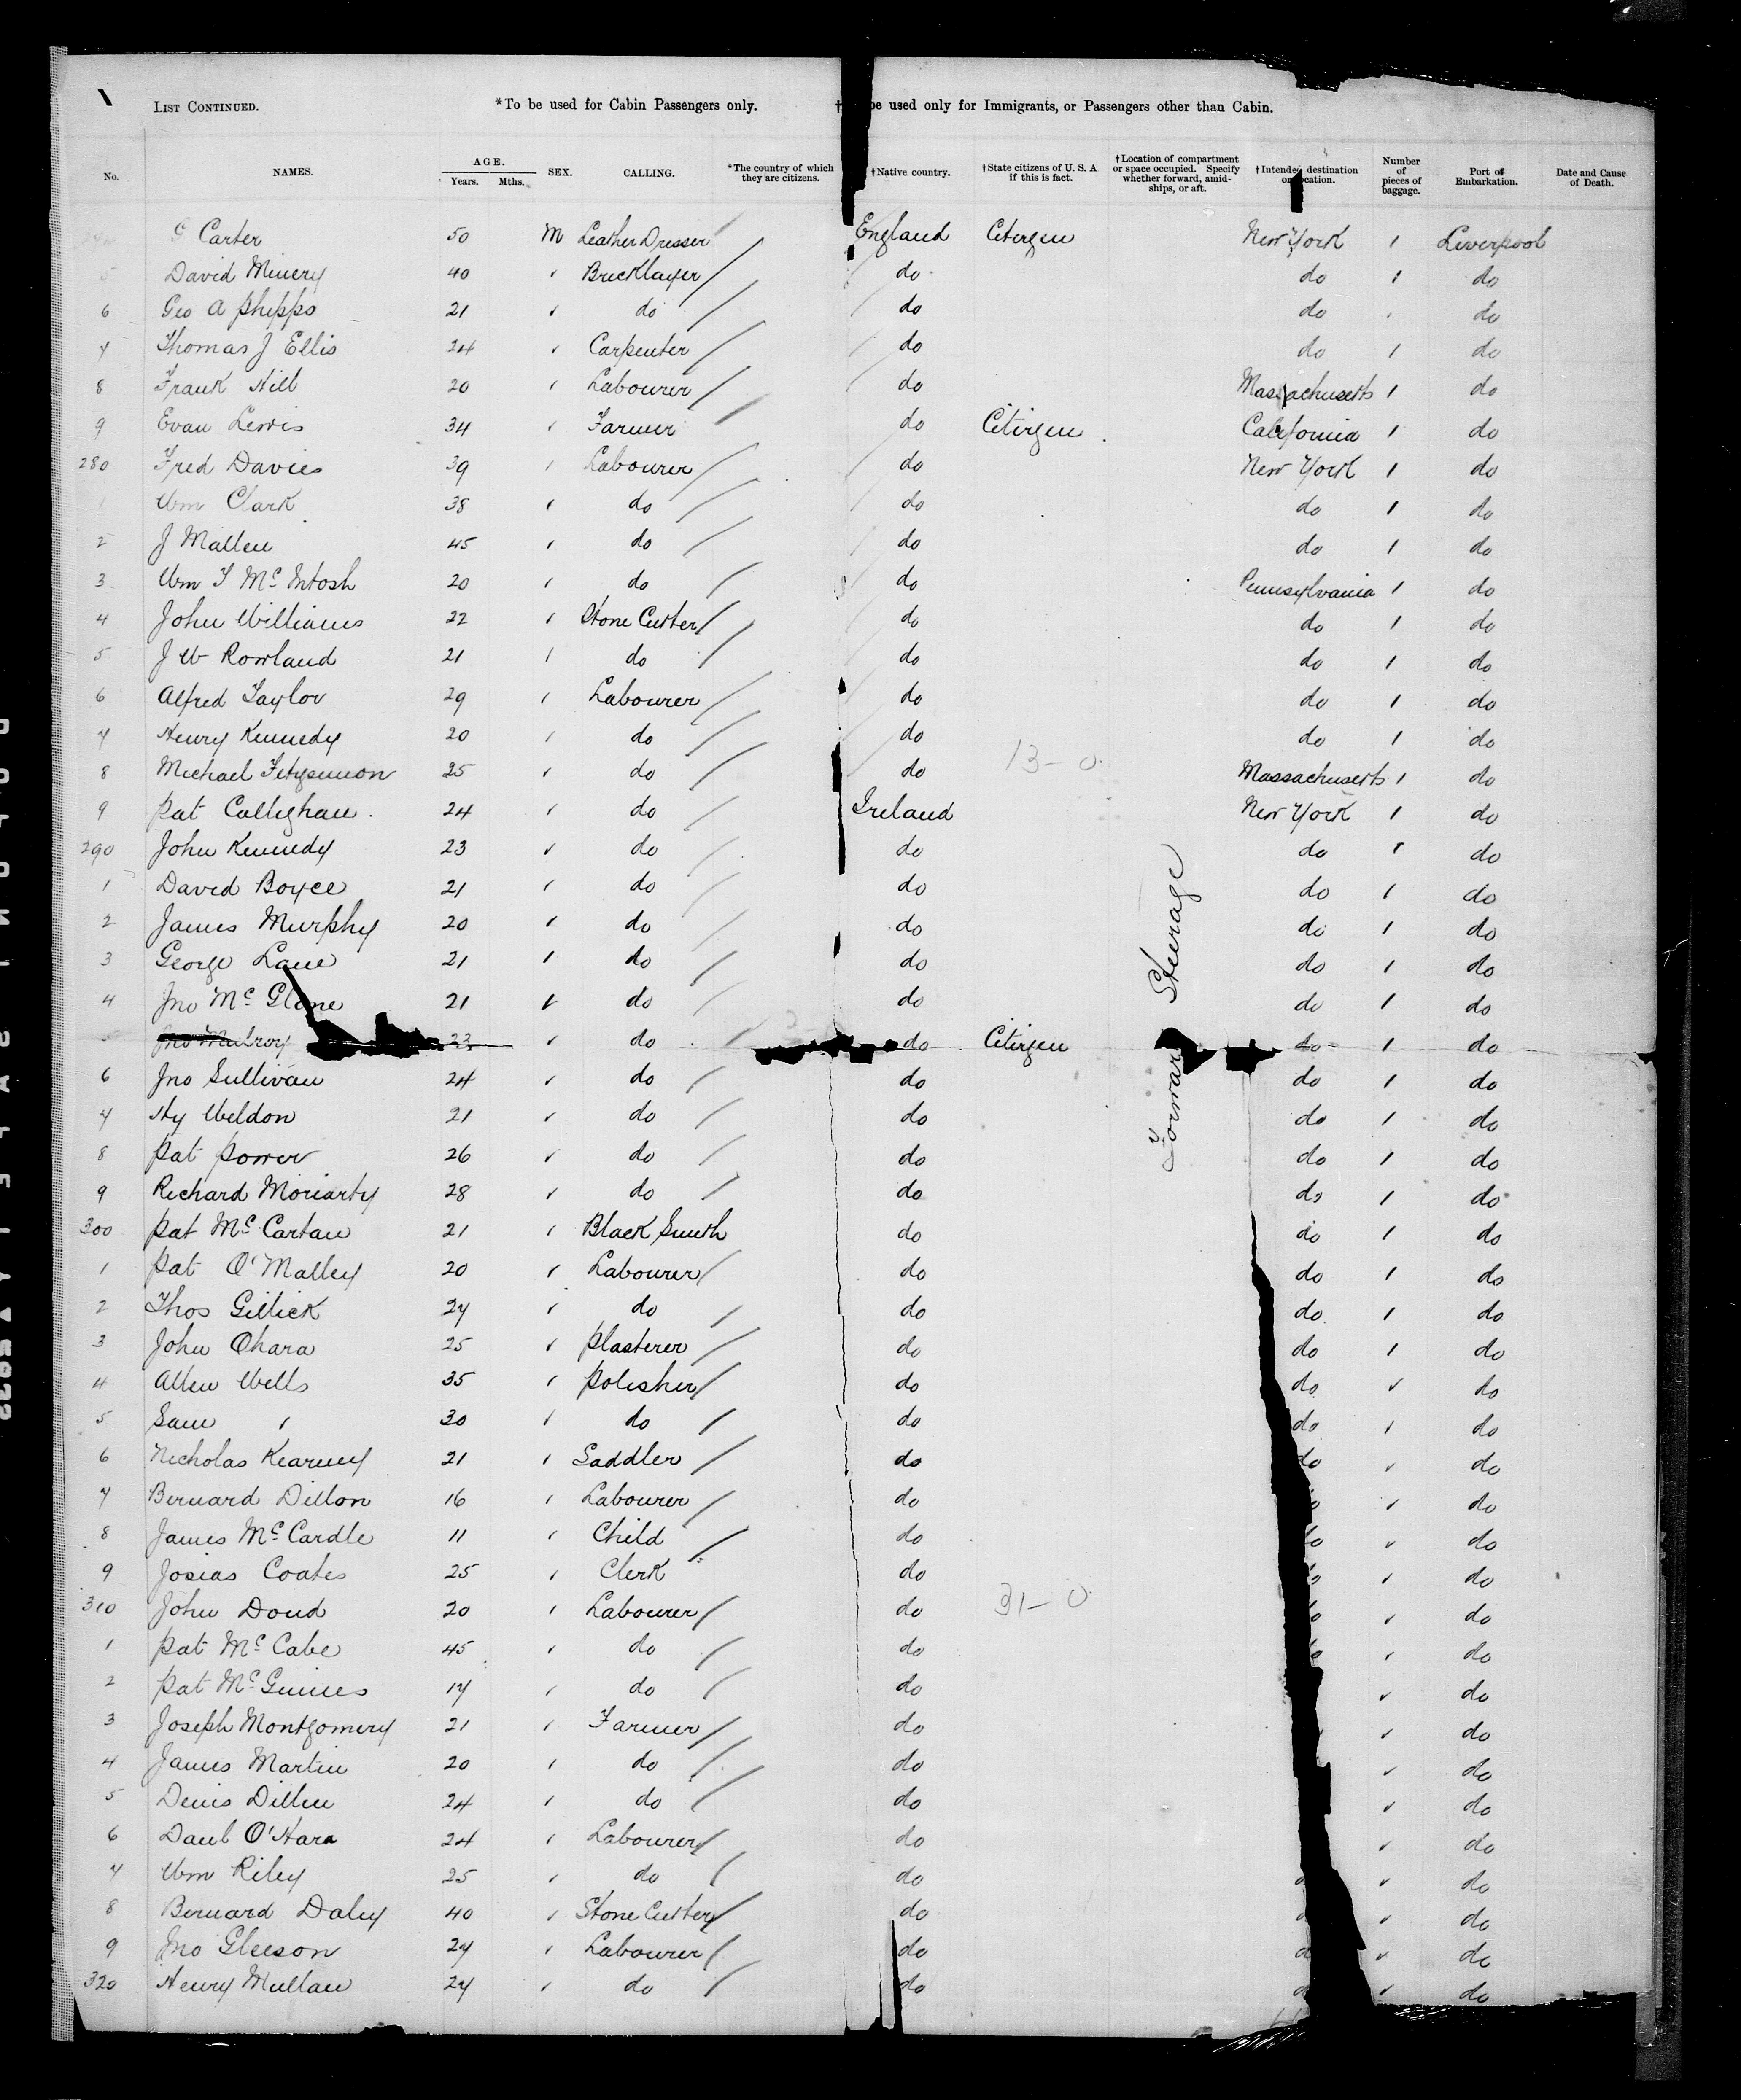 LIST CONTINUED. *To be used for Cabin Passengers only. † be used only for Immigrants, or Passengers other than Cabin.
No. NAMES. AGE. Years. Mths. SEX. CALLING. *The country of which they are citizens. †Native country. †State citizens of U. S. A if this is fact. †Location of compartment or space occupied. Specify whether forward, amidships, or aft. †Intended destination or location. Number of pieces of baggage. Port of Embarkation. Date and Cause of Death.
Carter 50 M Leather Dresser England Citizen New York 1 Liverpool
5 David Minery 40 " Bricklayer do do 1 do
6 Geo A Phipps 21 " do do do do
7 Thomas J Ellis 24 " Carpenter do do 1 do
8 Frank Hill 20 " Labourer do Massachusetts 1 do
9 Evan Lewis 34 " Farmer do Citizen California 1 do
280 Fred Davies 39 " Labourer do New York 1 do
1 Wm Clark 38 " do do do 1 do
2 J Mallen 45 " do do do 1 do
3 Wm T McIntosh 20 " do do Pennsylvania 1 do
4 John Williams 22 " Stone Cutter do do 1 do
5 J W Rowland 21 " do do do 1 do
6 Alfred Taylor 29 " Labourer do do 1 do
7 Henry Kennedy 20 " do do do 1 do
8 Michael Fitzsimon 25 " do do 13-0 Massachusetts 1 do
9 Pat Callighan 24 " do Ireland New York 1 do
290 John Kennedy 23 " do do do 1 do
1 David Boyce 21 " do do do 1 do
2 James Murphy 20 " do do do 1 do
3 George Lane 21 " do do do 1 do
4 Jno McGlone 21 " do do do 1 do
5 Jno Mulroy 23 " do do Citizen do 1 do
6 Jno Sullivan 24 " do do do 1 do
7 Hy Weldon 21 " do do do 1 do
8 Pat Power 26 " do do do 1 do
9 Richard Moriarty 28 " do do do 1 do
300 Pat McCartan 21 " Black Smith do do 1 do
1 Pat O'Malley 20 " Labourer do do 1 do
2 Thos Gillick 27 " do do do 1 do
3 John Ohara 25 " Plasterer do do 1 do
4 Allen Wells 35 " Polisher do do " do
5 Sam " 30 " do do do " do
6 Nicholas Kearney 21 " Saddler do do " do
7 Bernard Dillon 16 " Labourer do " do
8 James McCardle 11 " Child do " do
9 Josias Coates 25 " Clerk do " do
310 John Doud 20 " Labourer do 31-0 " do
1 Pat McCabe 45 " do do " do
2 Pat McGuines 17 " do do " do
3 Joseph Montgomery 21 " Farmer do " do
4 James Martin 20 " do do " do
5 Denis Dillen 24 " do do " do
6 Danl O'Hara 24 " Labourer do " do
7 Wm Riley 25 " do do " do
8 Bernard Daley 40 " Stone Cutter do " do
9 Jno Gleeson 27 " Labourer do " do
320 Henry Mullan 27 " do do " do
Forward Steerage